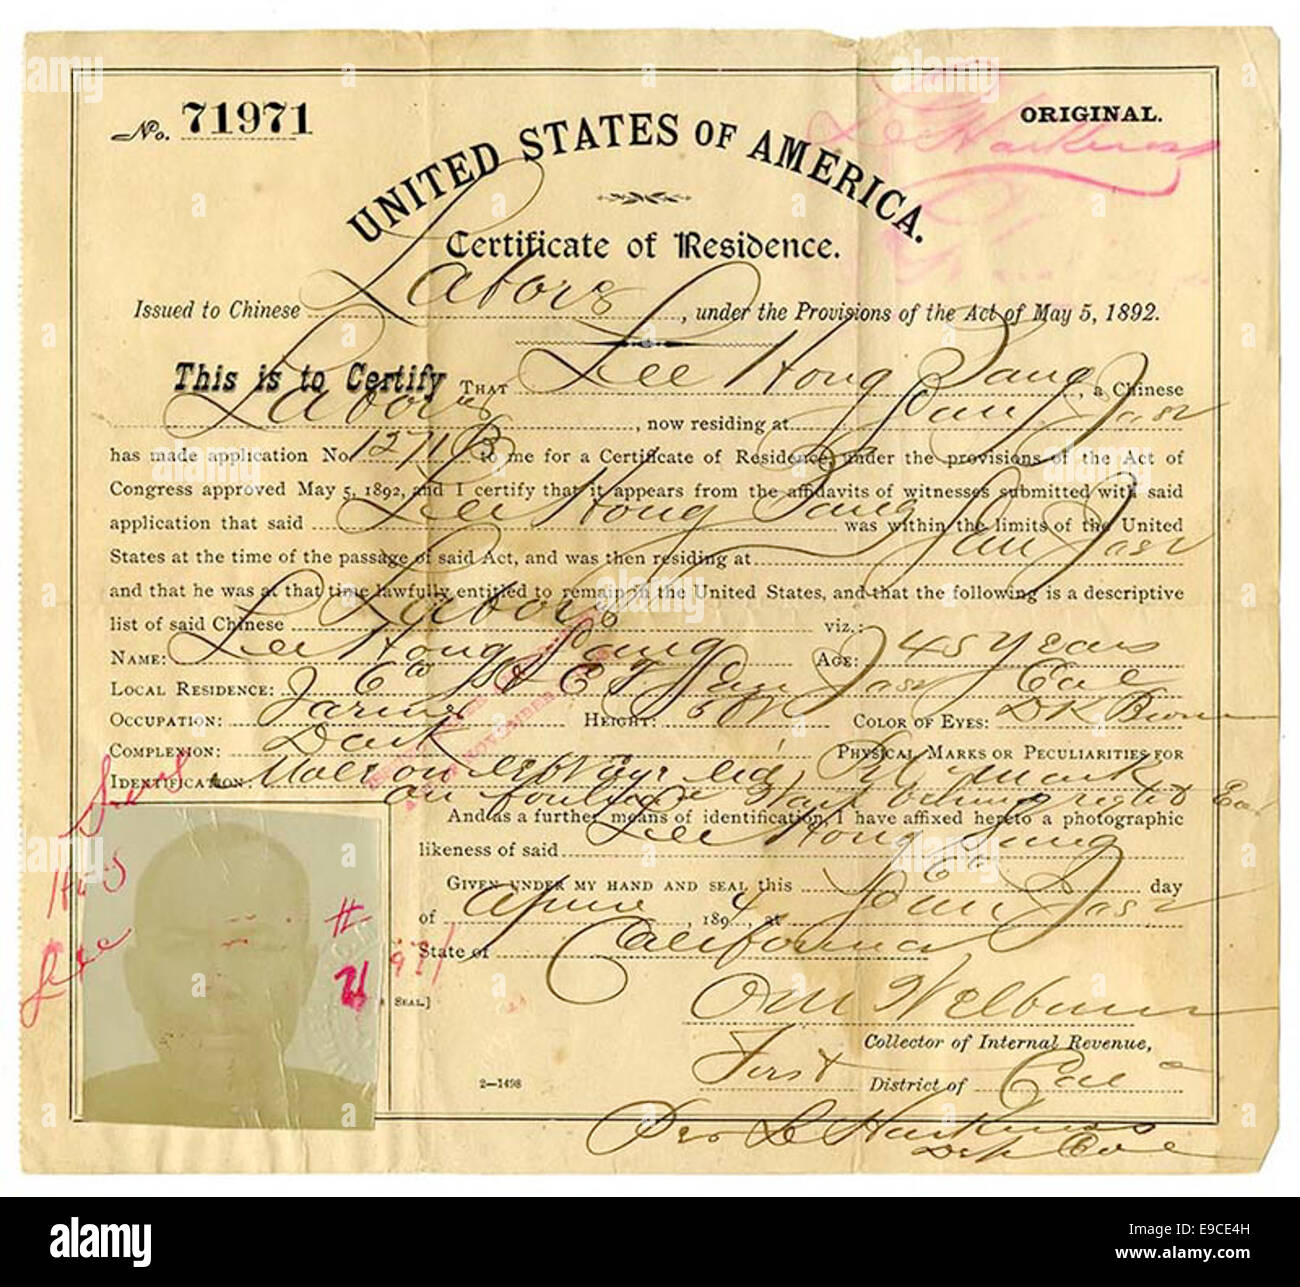 No. 71971
ORIGINAL.
UNITED STATES OF AMERICA.
Certificate of Residence.
Issued to Chinese Laborer, under the Provisions of the Act of May 5, 1892.
This is to Certify THAT Lee Hong Bang, a Chinese
Laborer, now residing at San Jose
has made application No. 1271 B to me for a Certificate of Residence, under the provisions of the Act of
Congress approved May 5, 1892, and I certify that it appears from the affidavits of witnesses submitted with said
application that said Lee Hong Bang was within the limits of the United
States at the time of the passage of said Act, and was then residing at San Jose
and that he was at that time lawfully entitled to remain in the United States, and that the following is a descriptive
list of said Chinese Laborer viz.:
NAME: Lee Hong Bang AGE: 45 Years
LOCAL RESIDENCE: San Jose Cal
OCCUPATION: HEIGHT: COLOR OF EYES: Dk Brown
COMPLEXION: Dark PHYSICAL MARKS OR PECULIARITIES FOR
IDENTIFICATION: Mole on left Eye lid, mark
on right Ear
And as a further means of identification, I have affixed hereto a photographic
likeness of said Lee Hong Bang
GIVEN UNDER MY HAND AND SEAL this day
of , 1894, at San Jose
State of California
[SEAL.]
O M Welburn
Collector of Internal Revenue,
First District of Cal
2—1498
Per L C Harkness
alamy
Image ID: E9CE4H
www.alamy.com